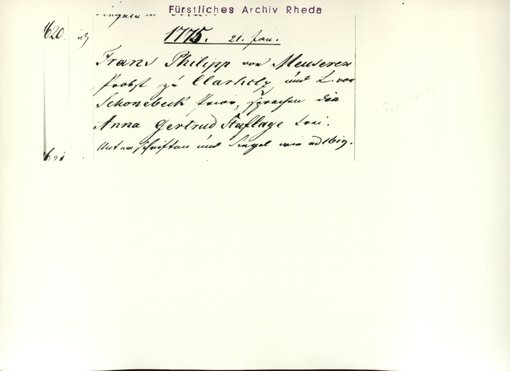 Fürstliches Archiv Rheda
620.
1775. 21. Jan.
Franz Philipp von Meuseren
Probst zu Clarholz und L. von
Schonebeck Prior, sprechen die
Anna Gertrud Stuflage frei.
Unterschriften und Siegel wie ad 619.